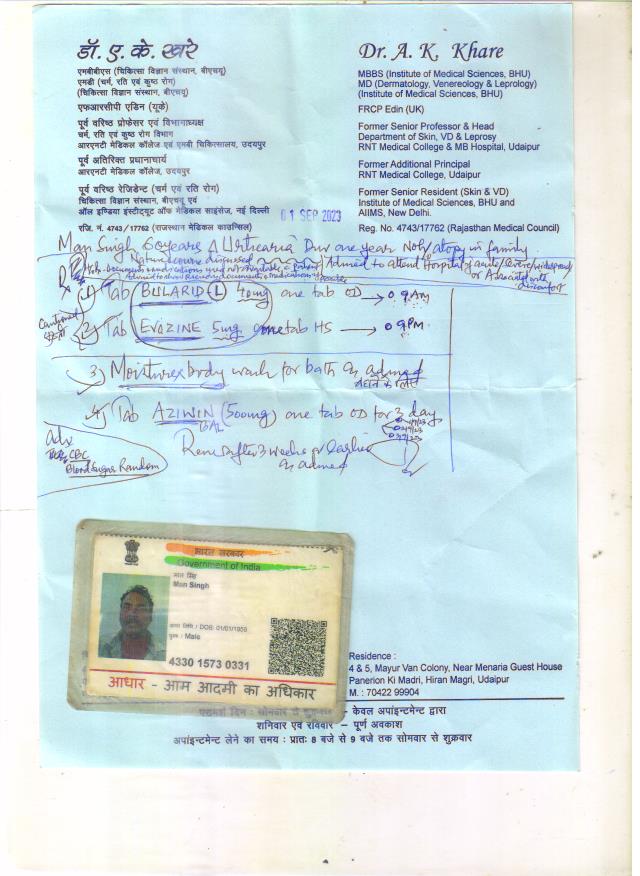 डॉ. ए. के. खरे
एमबीबीएस (चिकित्सा विज्ञान संस्थान, बीएचयू)
एमडी (चर्म, रति एवं कुष्ठ रोग)
(चिकित्सा विज्ञान संस्थान, बीएचयू)
एफआरसीपी एडिन (यूके)
पूर्व वरिष्ठ प्रोफेसर एवं विभागाध्यक्ष
चर्म, रति एवं कुष्ठ रोग विभाग
आरएनटी मेडिकल कॉलेज एवं एमबी चिकित्सालय, उदयपुर
पूर्व अतिरिक्त प्रधानाचार्य
आरएनटी मेडिकल कॉलेज, उदयपुर
पूर्व वरिष्ठ रेजिडेन्ट (चर्म एवं रति रोग)
चिकित्सा विज्ञान संस्थान, बीएचयू एवं
ऑल इण्डिया इंस्टीट्यूट ऑफ मेडिकल साइंसेज, नई दिल्ली
रजि. नं. 4743/17762 (राजस्थान मेडिकल काउन्सिल)
Dr. A. K. Khare
MBBS (Institute of Medical Sciences, BHU)
MD (Dermatology, Venereology & Leprology)
(Institute of Medical Sciences, BHU)
FRCP Edin (UK)
Former Senior Professor & Head
Department of Skin, VD & Leprosy
RNT Medical College & MB Hospital, Udaipur
Former Additional Principal
RNT Medical College, Udaipur
Former Senior Resident (Skin & VD)
Institute of Medical Sciences, BHU and
AIIMS, New Delhi.
Reg. No. 4743/17762 (Rajasthan Medical Council)
01 SEP 2023
Man Singh 60years Δ Urticaria Dur one year No P/atopy in family
Nature course discussed Advised to attend Hospital if acute/severe/widespread/
or Associated with discomfort
Rx
1) Tab BULARID (L) 40mg one tab OD → 09AM
2) Tab EVAZINE 5mg one tab HS → 09PM
3) Moisturex body wash for bath as advised
4) Tab AZIWIN (500mg) one tab OD for 3 day
Adv
CBC
Blood Sugar Random
Review after 3 weeks or earlier
as advised
भारत सरकार
Government of India
मान सिंह
Man Singh
जन्म तिथि / DOB: 01/01/1956
पुरुष / Male
4330 1573 0331
आधार - आम आदमी का अधिकार
Residence :
4 & 5, Mayur Van Colony, Near Menaria Guest House
Panerion Ki Madri, Hiran Magri, Udaipur
M. : 70422 99904
- केवल अपांइन्टमेन्ट द्वारा
शनिवार एवं रविवार - पूर्ण अवकाश
अपांइन्टमेन्ट लेने का समय : प्रातः 8 बजे से 9 बजे तक सोमवार से शुक्रवार